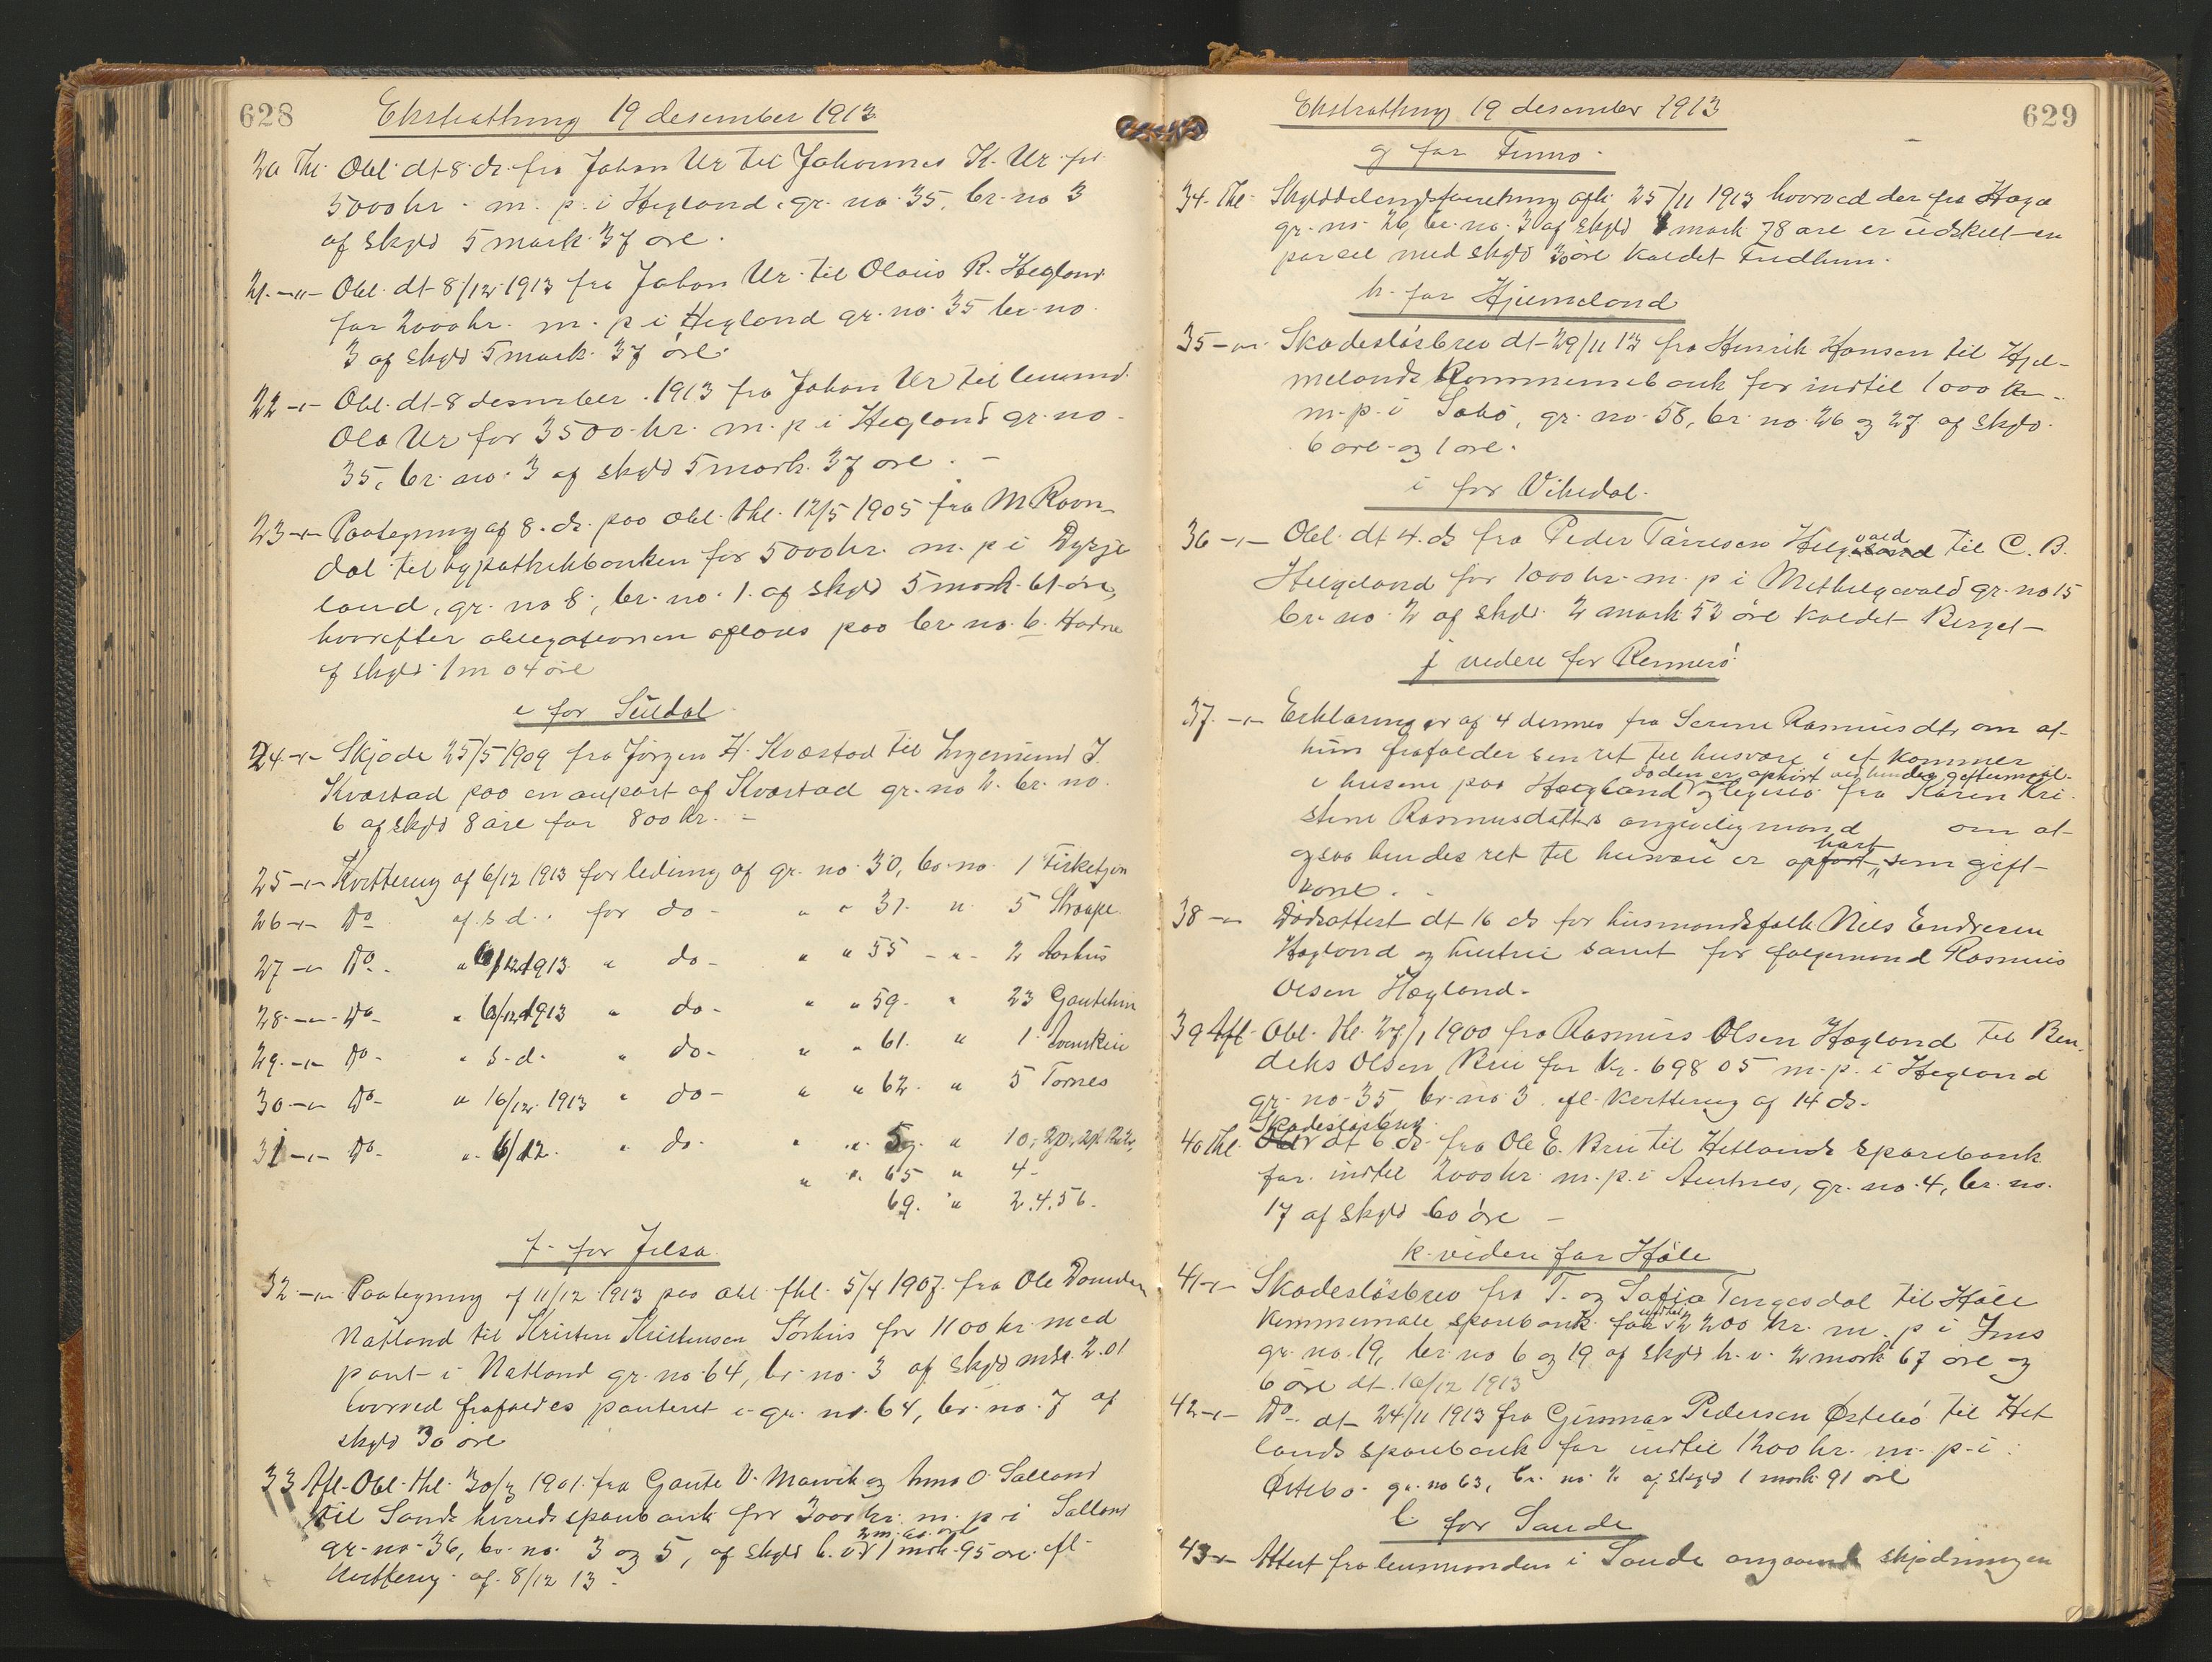 628
Ekstrathing 19 desember 1913
20 Thl. Obl. dt 8. ds. fra Johan Ur til Johannes K. Ur for
5000 kr. m. p. i Hegland, gr. no. 35, br. no 3
af skyld 5 mark 37 øre.
21. -"- Obl. dt 8/12 1913 fra Johan Ur til Olaus R. Hegland
for 2000 kr. m. p. i Hegland gr. no. 35 br. no.
3 af skyld 5 mark 37 øre.
22 -"- Obl. dt 8 desember 1913 fra Johan Ur til
Ola Ur for 3500 kr. m. p. i Hegland gr. no.
35, br. no. 3 af skyld 5 mark 37 øre. -
23 -"- Paategning af 8. ds. paa obl. thl. 12/5 1905 fra M. Ravn-
dal til hypothekbanken for 5000 kr. m. p. i Dysje
land, gr. no 8, br. no. 1 af skyld 5 mark 61 øre,
hvorefter obligationen afløses paa br. no. 6 Hadne
af skyld 1 m 04 øre
e for Suldal
24 -"- Skjøde 25/5 1909 fra Jørgen H. Kvæstad til Ingemund J.
Kvæstad paa en anpart af Kvæstad gr. no 2. br. no.
6 af skyld 8 øre for 800 kr. -
25 -"- Kvittering af 6/12 1913 for ledning af gr. no. 30, br. no. 1 Fisketjøn
26 -"- Do af s. d. for do - " " 37. " 5 Straape
27 -"- Do " 6/12 1913 " do - " " 55 - " - 2 Aarhus
28 -"- Do " 6/12 1913 " do - " " 59. " 23 Gautehin
29 -"- Do " s. d. " do - " " 61. " 1
30 -"- Do " 16/12 1913 " do - " " 62. " 5 Tornes
31 -"- Do " 6/12. " do - " " 59. " 10, 20,
" " 65 " 4 -
69. " 2.4.56.
f. for Jelsa
32 -"- Paategning af 11/12 1913 paa obl. thl. 5/4 1907 fra Ole
Natland til Kristen Kristensen Sørhus for 1100 kr. med
pant i Natland gr. no. 64, br. no. 3 af skyld mrk. 2.01
hvorved frafaldes panteret i gr. no. 64, br. no. 7 af
skyld 30 øre
33 Afl. Obl. thl. 30/3 1901 fra Gaute V. Marvik og O. Salland
til Sands herreds sparebank for 3000 kr. m. p. i Salland
gr. no. 36, br. no. 3 og 5, af skyld h. v. 1 mrk. 95 øre. efl.
kvittering af 8/12 13.
629
Ekstrathing 19 desember 1913
g for Finnø.
34. Thl. Skylddelingsforretning afh. 25/11 1913 hvorved der fra Haga
gr. no. 26, br. no. 3 af skyld 1 mark 78 øre er udskilt en
parsel med skyld 30 øre kaldet Fredhem.
h. for Hjelmeland
35 -"- Skadesløsbrev dt 29/11 13 fra Henrik Hansen til Hjel-
melands Kommunebank for indtil 1000 kr
m. p. i Sabø, gr. no. 58, br. no. 26 og 27 af skyld.
6 øre og 1 øre.
i for Vikedal.
36 -"- Obl. dt 4. ds fra Peder Tørresen Helgevold til C. B.
Helgeland for 1000 kr. m. p. i Methelgevold gr. no 15
br. no. 2 af skyld 2 mark 53 øre kaldet Berget -
j videre for Rennesø
37. -"- Erklæringer af 4 dennes fra Serine Rasmusdtr om at
hun frafalder sin ret til husvære i et kammer
da den er ophørt ved hendes giftermaal.
i husene paa Hægland og ligesaa fra Karen Kri-
stine Rasmusdatters angivelig mand om at
hørt
ogsaa hendes ret til husvære er opført, som gift-
kone.
38 -"- Dødsattest dt 16 ds for husmandsfolk Nils Endresen
Hægland og hustru samt for følgemand Rasmus
Olsen Hægland.
39 Afl. Obl. thl. 27/1 1900 fra Rasmus Olsen Hægland til Ben-
diks Olsen Bru for kr. 698 05 m. p. i Hegland
gr. no. 35 br. no 3. efl. kvittering af 14 ds.
Skadesløsbrev
40 Thl. Obl. dt 6 ds. fra Ole E. Bru til Hetlands sparebank
for indtil 2000 kr. m. p. i Austnes, gr. no. 4, br. no.
17 af skyld 60 øre -
k. videre for Høle
41 -"- Skadesløsbrev fra T. og Sofia Tengesdal til Høle
indtil
Kommunale sparebank for 2200 kr. m. p. i Ims
gr. no. 19, br. no 6 og 19 af skyld h. v. 2 mark 67 øre og
6 øre dt. 16/12 1913
42 -"- Do - dt 24/11 1913 fra Gunnar Pedersen Østebø til Het
lands sparebank for indtil 1200 kr. m. p. i
Østebø. gr. no 63, br. no. af skyld 1 mark 91 øre
l. for Sande
43 -"- Attest fra lensmanden i Sande angaaende skjødningen